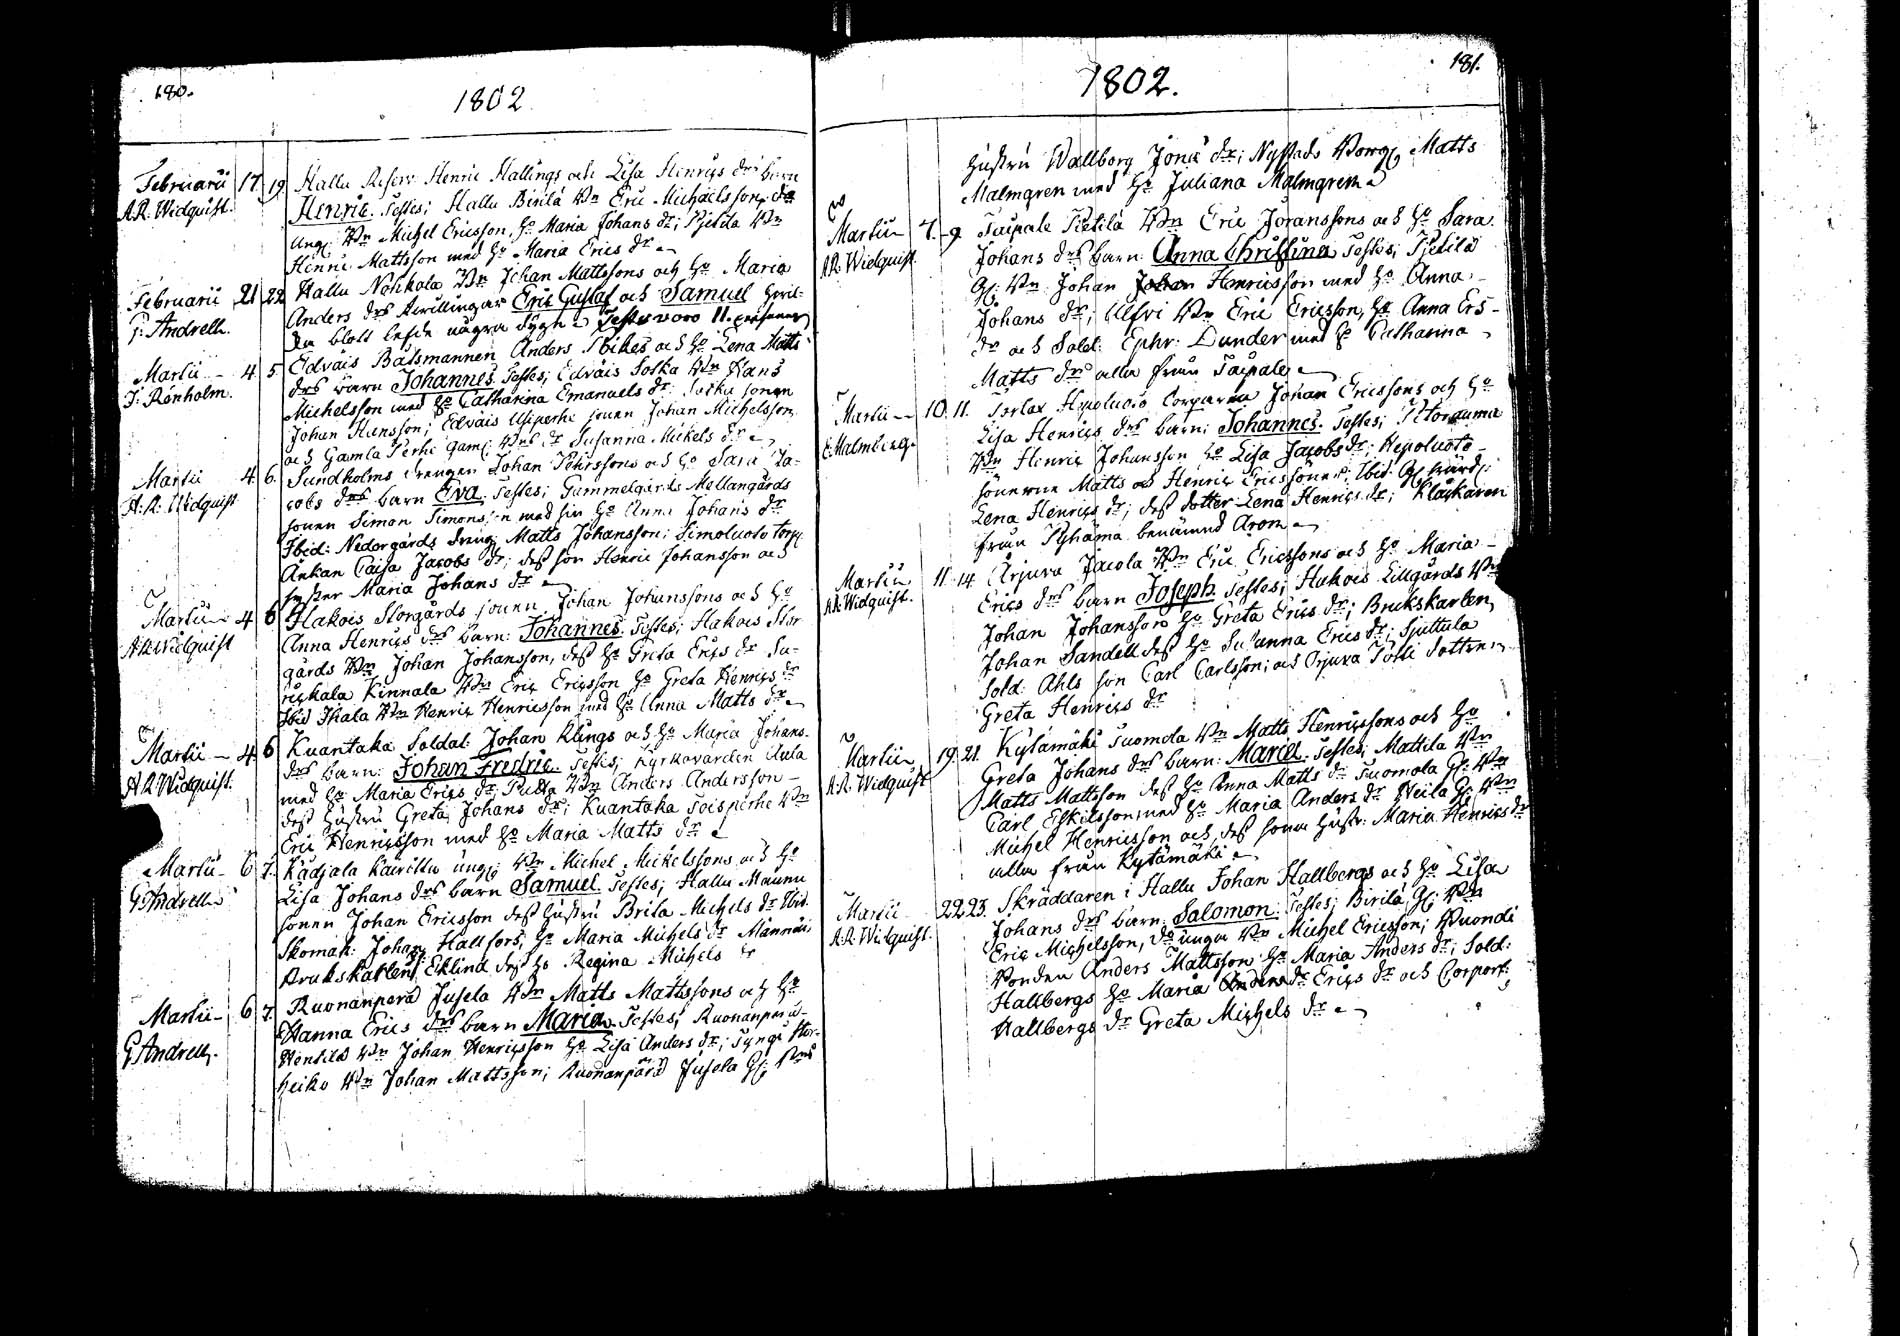 180.
1802
Februarii 17. 19. Hallu Reserv. Henric Hallings och Lisa Henrics drs barn
A.R. Widquist. Henric. Testes; Hallu Birilä Bdn Eric Michaelsson, do
ung. Bdn Michel Ericsson, Ho Maria Johans dr; Pietila Bdn
Henric Mattsson med Ho Maria Erics dr
Februarii 21 22 Hallu Nohkola Bdn Johan Mattssons och Ho Maria
G. Andrell. Anders drs twillingar Eric Gustaf och Samuel hwil-
ka blott lefde några dygn Testes woro 11. personer
Martii 4. 5. Edväis Båtsmannen Anders Spikes och Ho Lena Matts
J. Rönholm. drs barn Johannes. Testes; Edväis Sotka Bdn Hans
Michelsson med Ho Catharina Emanuels dr; Sotka sonen
Johan Hansson; Edväis Uhiperhe sonen Johan Michelsson
och Gamla Perhe gaml. Bdns dr Susanna Mickels dr
Martii 4. 6. Sundholms drengen Johan Pehrssons och Ho Sara Ja-
A.R. Widquist cobs drs barn Eva. Testes; Gammelgårds Mellangårds
sonen Simon Simonsson med sin Ho Anna Johans dr
Ibid: Nedorgårds dreng Matts Johansson; Simoluoto torp.
Änkan Caisa Jacobs dr; dess son Henric Johansson och
syster Maria Johans dr
Martii 4 6 Hakois Storgårds sonen Johan Johanssons och Ho
A.R. Widquist Anna Henrics drs barn: Johannes. Testes; Hakois Stor
gårds Bdn Johan Johansson, dess Ho Greta Erics dr Su-
rickala Kinnala Bdn Eric Ericsson Ho Greta Henrics dr
Ibid Ihala Bdn Henric Henricsson med Ho Anna Matts dr
Martii 4. 6 Kuantaka Soldat. Johan Klings och Ho Maria Johans
A.R. Widquist. drs barn: Johan Fredric. Testes; Kyrkovärden Aula
med Ho Maria Erics dr; Bdn Anders Andersson
dess hustru Greta Johans dr; Kuantaka Toisperhe Bdn
Eric Henricsson med Ho Maria Matts dr
Martii 6 7. Kadjala ung. Bdn Michel Mickelssons och Ho
G. Andrell Lisa Johans drs barn Samuel. Testes; Hallu Maunu
sonen Johan Ericsson dess hustru Brita Michels dr Ibid.
Skomak. Johan Hallfors, Ho Maria Michels dr Männäis
Brukskarlen Eklind dess Ho Regina Michels dr
Martii 6 7. Ruonanperä Jusela Bdn Matts Mattssons och Ho
G. Andrell. Hanna Erics drs barn Maria. Testes; Ruonanperä
Hentilä Bdn Johan Henricsson Ho Lisa Anders dr; Tynge Stor-
heiko Bdn Johan Mattsson; Ruonanpärä Jusela Gl. Bdns
181.
1802.
hustru Wallborg Jonæ dr; Nystads Borg. Matts
Malmgren med Ho Juliana Malmgren
Martii 7. 9 Taipale Pietilä Bdn Eric Jöranssons och Ho Sara
A.R. Widquist. Johans drs barn: Anna Christina Testes; Pietilä
Gl. Bdn Johan Johan Henricsson med Ho Anna
Johans dr; Ulfvi Bdn Eric Ericsson, Ho Anna Ers
dr och Sold. Ephr: Lunder med Ho Catharina
Matts dr alla från Taipale
Martii 10. 11. Torlax Hepoluoto Torparen Johan Ericssons och Ho
E. Malmberg. Lisa Henrics drs barn: Johannes. Testes; Storauma
Bdn Henric Johansson Ho Lisa Jacobs dr; Hepoluoto
sönerne Matts och Henric Ericssöner: Ibid:
Lena Henrics dr; dess dotter Lena Henrics dr; Klåckaren
från Pyhäma benämnd Arom
Martii 11. 14. Arjura Jacola Bdn Eric Ericssons och Ho Maria
A.R. Widquist. Erics drs barn Joseph. Testes; Hakois Lillgårds Bdn
Johan Johansson Ho Greta Erics dr; Brukskarlen
Johan Sandell dess Ho Susanna Erics dr; Sjuttula
Sold. Ahls son Carl Carlsson; och Orjura Tötti dotter
Greta Henrics dr
Martii 19. 21. Kytämäki Suomola Bdn Matts Henricssons och Ho
A.R. Widquist Greta Johans drs barn: Maria. Testes; Mattila Bdn
Matts Mattsson dess Ho Anna Matts dr Suomola Gl. Bdn
Carl Eskilsson med Ho Maria Anders dr Heila Gl. Bdn
Michel Henricsson och dess sons hustr. Maria Henrics dr
alla från Kytämäki
Martii 22 23. Skräddaren i Hallu Johan Hallbergs och Ho Lisa
A.R. Widquist. Johans drs barn: Salomon. Testes; Birilä Gl. Bdn
Eric Michelsson, do unga Bdn Michel Ericsson; Wuondi
Bonden Anders Mattsson Ho Maria Anders dr; Sold:
Hallbergs Ho Maria Anders dr Erics dr och Corporl:
Hallbergs dr Greta Michels dr